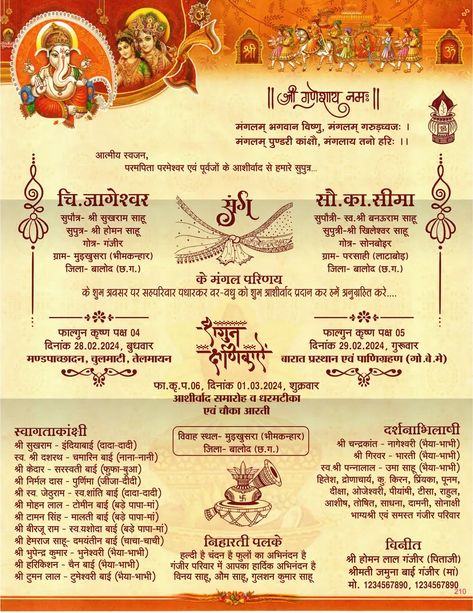 श्री
ॐ
|| श्री गणेशाय नमः ||
मंगलम् भगवान विष्णु, मंगलम् गरुड़ध्वजः ।
मंगलम् पुण्डरी कांक्षौ, मंगलाय तनो हरिः ।।
आत्मीय स्वजन,
परमपिता परमेश्वर एवं पूर्वजों के आशीर्वाद से हमारे सुपुत्र...
चि.जागेश्वर
सुपौत्र- श्री सुखराम साहू
सुपुत्र- श्री होमन साहू
गोत्र- गंजीर
ग्राम- मुड़खुसरा (भीमकन्हार)
जिला- बालोद (छ.ग.)
संग
सौ.का.सीमा
सुपौत्री- स्व.श्री बनऊराम साहू
सुपुत्री-श्री खिलेश्वर साहू
गोत्र- सोनबोइर
ग्राम- परसाही (लाटाबोड़)
जिला- बालोद (छ.ग.)
के मंगल परिणय
के शुभ अवसर पर सहपरिवार पधारकर वर-वधु को शुभ आशीर्वाद प्रदान कर हमें अनुग्रहित करे....
फाल्गुन कृष्ण पक्ष 04
दिनांक 28.02.2024, बुधवार
मण्डपाच्छादन, चुलमाटी, तेलमायन
शगुन
क्षणिकाएँ
फाल्गुन कृष्ण पक्ष 05
दिनांक 29.02.2024, गुरूवार
बारात प्रस्थान एवं पाणिग्रहण (गो.बे.मे)
फा.कृ.प.06, दिनांक 01.03.2024, शुक्रवार
आशीर्वाद समारोह व धरमटीका
एवं चौका आरती
स्वागताकांक्षी
श्री सुखराम - इंदियाबाई (दादा-दादी)
स्व. श्री दशरथ - चमारिन बाई (नाना-नानी)
श्री केदार - सरस्वती बाई (फुफा-बुआ)
श्री निर्मल दास - पुर्णिमा (जीजा-दीदी)
श्री स्व. जेठुराम - स्व.शांति बाई (दादा-दादी)
श्री मोहन लाल - टोमीन बाई (बड़े पापा-मां)
श्री टामन सिंह - मालती बाई (बड़े पापा-मां)
श्री बीरजू राम - स्व.यशोदा बाई (बड़े पापा-मां)
श्री हेमराज साहू- दमयंतीन बाई (चाचा-चाची)
श्री भुपेन्द्र कुमार - भुनेश्वरी (भैया-भाभी)
श्री हरिकिशन - चैन बाई (भैया-भाभी)
श्री टुमन लाल - टुमेश्वरी बाई (भैया-भाभी)
विवाह स्थल- मुड़खुसरा (भीमकन्हार)
जिला- बालोद (छ.ग.)
निहारती पलकें
हल्दी है चंदन है फूलों का अभिनंदन है
गंजीर परिवार में आपका हार्दिक अभिनंदन है
विनय साहू, ओम साहू, गुलशन कुमार साहू
दर्शनाभिलाषी
श्री चन्द्रकांत - नागेश्वरी (भैया-भाभी)
श्री गिरवर - भारती (भैया-भाभी)
स्व.श्री पन्नालाल - उमा साहू (भैया-भाभी)
हितेश, द्रोणाचार्य, कु. किरन, प्रियंका, पूनम,
दीक्षा, ओजेश्वरी, पीयांषी, टीसा, राहुल,
आशीष, तोषित, साधना, दामनी, सोनाक्षी
भाग्यश्री एवं समस्त गंजीर परिवार
विनीत
श्री होमन लाल गंजीर (पिताजी)
श्रीमती जमुना बाई गंजीर (मां)
मो. 1234567890, 1234567890
210